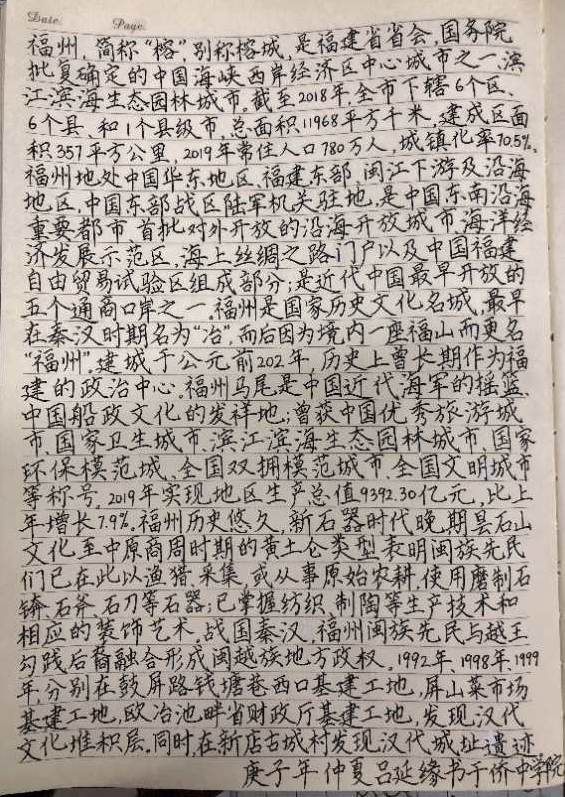 Date Page
福州，简称“榕”，别称榕城，是福建省省会，国务院
批复确定的中国海峡西岸经济区中心城市之一、滨
江滨海生态园林城市。截至2018年，全市下辖6个区、
6个县、和1个县级市，总面积11968平方千米，建成区面
积357平方公里，2019年常住人口780万人，城镇化率70.5%。
福州地处中国华东地区、福建东部、闽江下游及沿海
地区，中国东部战区陆军机关驻地，是中国东南沿海
重要都市、首批对外开放的沿海开放城市、海洋经
济发展示范区、海上丝绸之路门户以及中国福建
自由贸易试验区组成部分；是近代中国最早开放的
五个通商口岸之一。福州是国家历史文化名城，最早
在秦汉时期名为“冶”，而后因为境内一座福山而更名
“福州”。建城于公元前202年，历史上曾长期作为福
建的政治中心。福州马尾是中国近代海军的摇篮、
中国船政文化的发祥地；曾获中国优秀旅游城
市、国家卫生城市、滨江滨海生态园林城市、国家
环保模范城、全国双拥模范城市、全国文明城市
等称号。2019年实现地区生产总值9392.30亿元，比上
年增长7.9%。福州历史悠久，新石器时代晚期昙石山
文化至中原商周时期的黄土仑类型，表明闽族先民
们已在此以渔猎、采集，或从事原始农耕，使用磨制石
锛、石斧、石刀等石器；已掌握纺织、制陶等生产技术和
相应的装饰艺术。战国秦汉，福州闽族先民与越王
勾践后裔融合形成闽越族地方政权。1992年、1998年、1999
年，分别在鼓屏路钱塘巷西口基建工地，屏山菜市场
基建工地，欧冶池畔省财政厅基建工地，发现汉代
文化堆积层。同时，在新店古城村发现汉代城址遗迹
庚子年仲夏吕延缘书于侨中学院